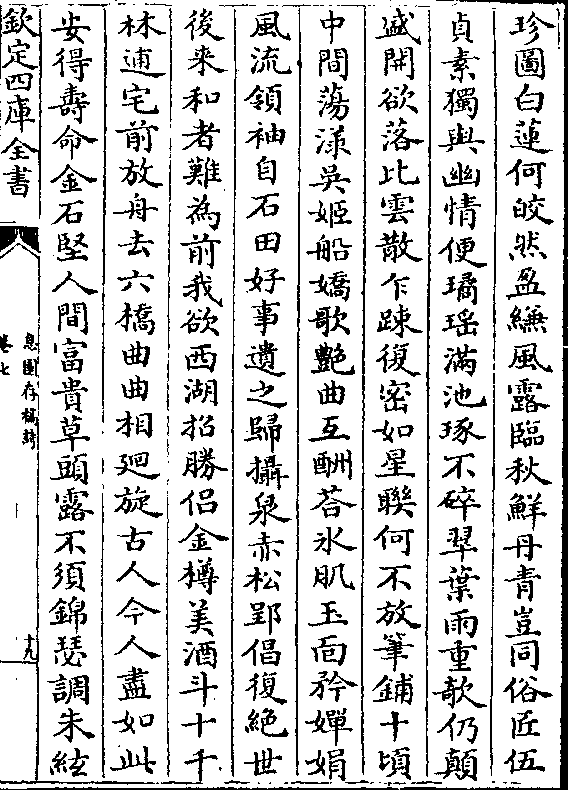 珍圖白蓮何皎然盈縑風露臨秋鮮丹青豈同俗匠伍
貞素獨與幽情便璚瑶滿池琢不碎翠葉雨重欹仍顛
盛開欲落比雲散乍踈復密如星聯何不放筆鋪十頃
中間蕩漾吳姬船嬌歌艷曲互酬荅氷肌玉面矜嬋娟
風流領袖自石田好事遺之歸攝泉赤松郢倡復絶世
後來和者難為前我欲西湖招勝侣金樽美酒斗十千
林逋宅前放舟去六橋曲曲相廻旋古人今人盡如此
安得壽命金石堅人間富貴草頭露不須錦瑟調朱絃
欽定四庫全書
息園存稿詩
卷七
十九